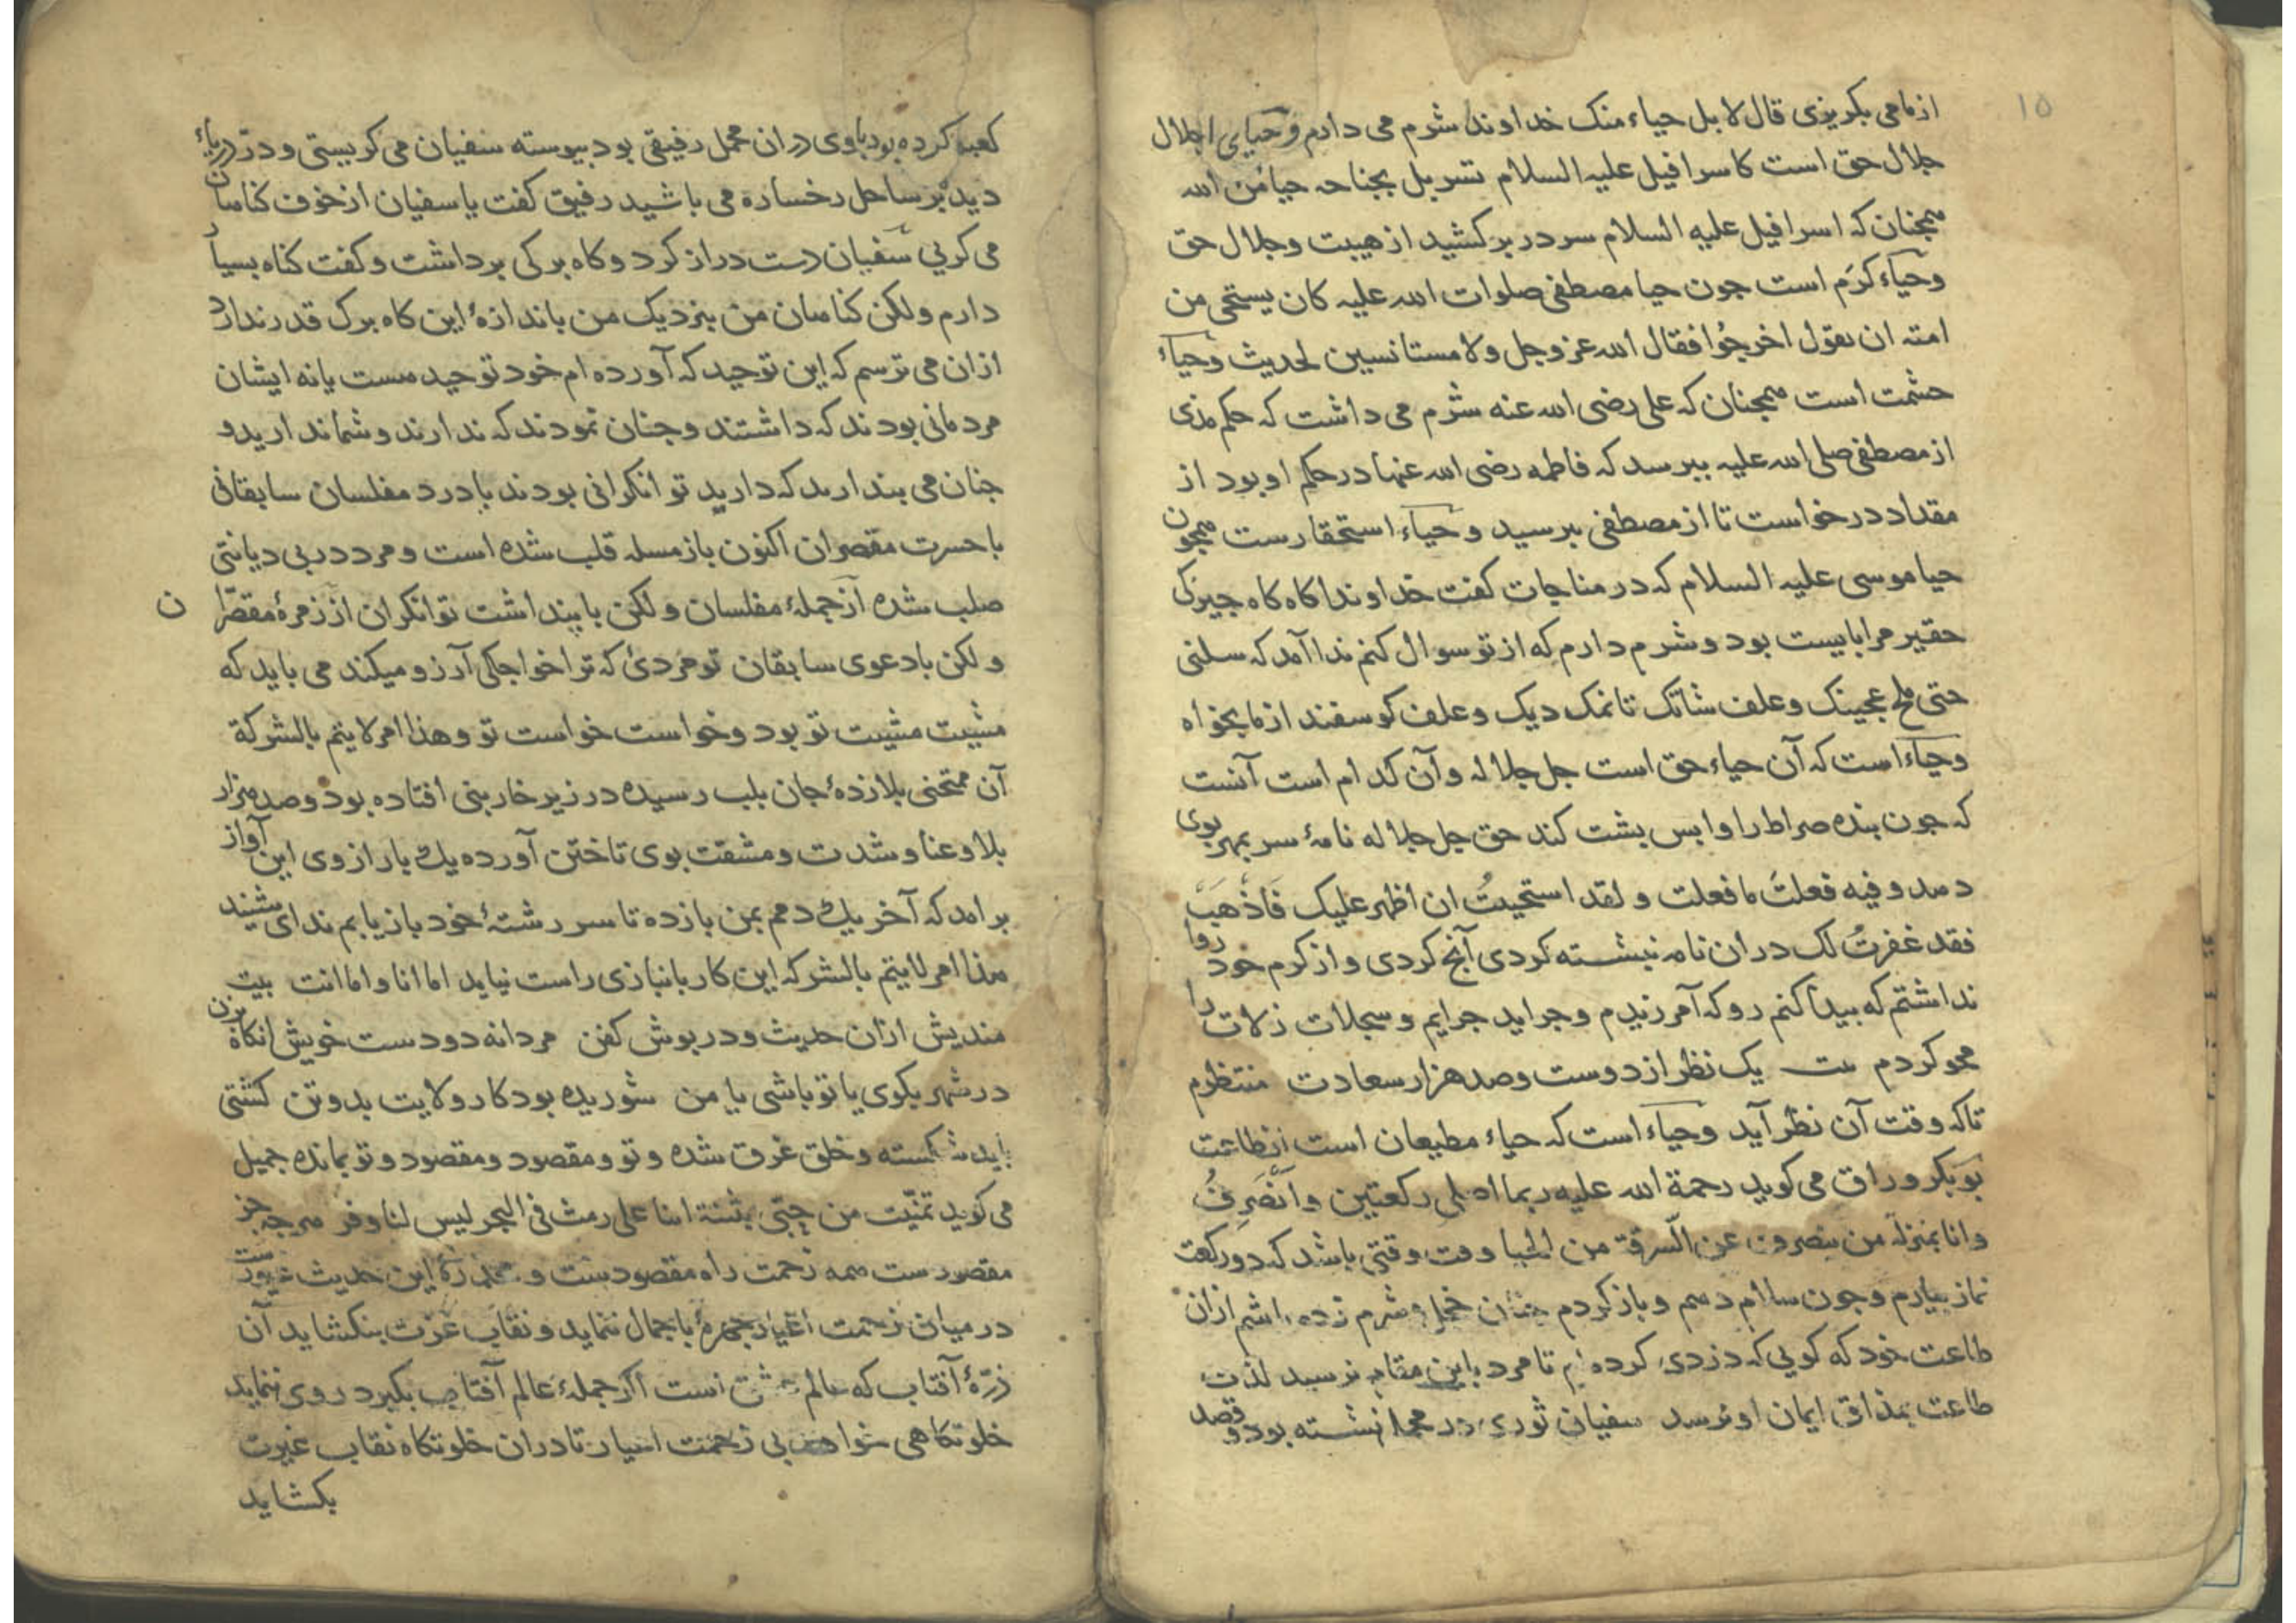 ۱۵
از ما می بکریزی قال لا بل حیاء منک خداوندا شرم می دارم و حیای اجلال
جلال حق است کاسرافیل علیه السلام تسربل بجناحه حیاءً من الله
همچنان که اسرافیل علیه السلام سر در بر کشید از هیبت و جلال حق
و حیاء کرم است جون حیا مصطفی صلوات الله علیه کان یستحی من
امته ان یقول اخرجُوا فقال الله عز وجل ولا مستانسین لحدیث و حیاء
حشمت است همجنان که علی رضی الله عنه شرم می داشت که حکم مذی
از مصطفی صلی الله علیه ببرسد که فاطمه رضی الله عنها در حکم او بود از
مقداد درخواست تا از مصطفی ببرسید و حیاء استحقارست همجون
حیا موسی علیه السلام که در مناجات کفت خداوندا کاه کاه جیزکی
حقیر مرا بایست بود و شرم دارم که از تو سوال کنم ندا آمد که سلنی
حتی ملح عجینک و علف شاتک تا نمک دیک و علف کوسفند از ما بخواه
و حیاء است که آن حیاء حق است جل جلاله و آن کدام است آنست
که جون بنده صراط را وا بس بشت کند حق جل جلاله نامۀ سر بمهر بوی
دهد و فیه فعلتَ ما فعلت و لقد استحییتُ ان اظهر علیک فَاذْهَبْ
فقد غفرتُ لک در ان نامه نبشته کردی آنج کردی و از کرم خود روا
نداشتم که بیدا کنم رو که آمرزیدم و جراید جرایم و سجلات زلات را
محو کردم بیت یک نظر از دوست و صد هزار سعادت منتظرم
تا که وقت آن نظر آید و حیاء است که حیاء مطیعان است از طاعت
بوبکر وراق می کوید رحمة الله علیه ربما اصلی رکعتین و اَنْصَرِفُ
و انا بمنزلة من ینصرف عن السّرقة من الحیا وقت وقتی باشد که دو رکعت
نماز بیارم و جون سلام دهم و باز کردم جنان خجل و شرم زده باشم از ان
طاعت خود که کویی که دزدی کرده ام تا مرد باین مقام نرسید لذت
طاعت بمذاق ایمان او نرسد سفیان ثوری در محمل نشسته بود و قصد
کعبه کرده بود با وی در ان محمل رفیقی بود بیوسته سفیان می کریستی و در دریاء
دیده بر ساحل رخساره می باشید رفیق کفت یا سفیان از خوف کناهان
می کریی سفیان دست دراز کرد و کاه برکی برداشت و کفت کناه بسیار
دارم ولکن کناهان من بنزدیک من باندازۀ این کاه برک قدر ندارد
از ان می ترسم که این توحید که آورده ام خود توحید هست یا نه ایشان
مردمانی بودند که داشتند و جنان نمودند که ندارند و شما ندارید و
جنان می بندارید که دارید توانکرانی بودند با درد مفلسان سابقانی
با حسرت مقصران اکنون باز مسله قلب شده است و مرد در بی دیانتی
صلب شده از جملۀ مفلسان و لکن با پنداشت توانکران از زمرۀ مقصّران
و لکن با دعوی سابقان تو مردیٔ که ترا خواجکی آرزو میکند می باید که
مشیت مشیت تو بود و خواست خواست تو و هذا امر لا یتم بالشرکة
آن ممتحنی بلا زدۀ جان بلب رسیده در زیر خاربنی افتاده بود و صد هزار
بلا و عنا و شدت و مشقت بوی تاختن آورده یک بار از وی این آواز
برامد که آخر یک دمم بمن باز ده تا سر رشتۀ خود باز یابم ندای شنید
هذا امر لا یتم بالشرکه این کار بانبازی راست نیاید اما انا و اما انت بیت
مندیش ازان حدیث و در بوش کفن مردانه دو دست خویش انکاه بزن
در شهر بکوی یا تو باشی یا من شوریده بود کار ولایت بدو تن کشتی
باید شکسته و خلق غرق شده و تو و مقصود و مقصود و تو بمانده جمیل
می کوید تمنّیت من حِبّی بثنة اننا علی رمث فی البحر لیس لنا وفر هر جه جز
مقصودست همه زحمت راه مقصودست و مخدرۀ این حدیث غیورست
در میان زحمت اغیار جهرۀ با جمال ننماید و نقاب عزت بنکشاید آن
ذرّۀ آفتاب که عالم عشق است اکر جملۀ عالم آفتاب بکیرد روی ننماید
خلوتکاهی خواهد بی زحمت اغیار تا در ان خلوتکاه نقاب غیرت
بکشاید